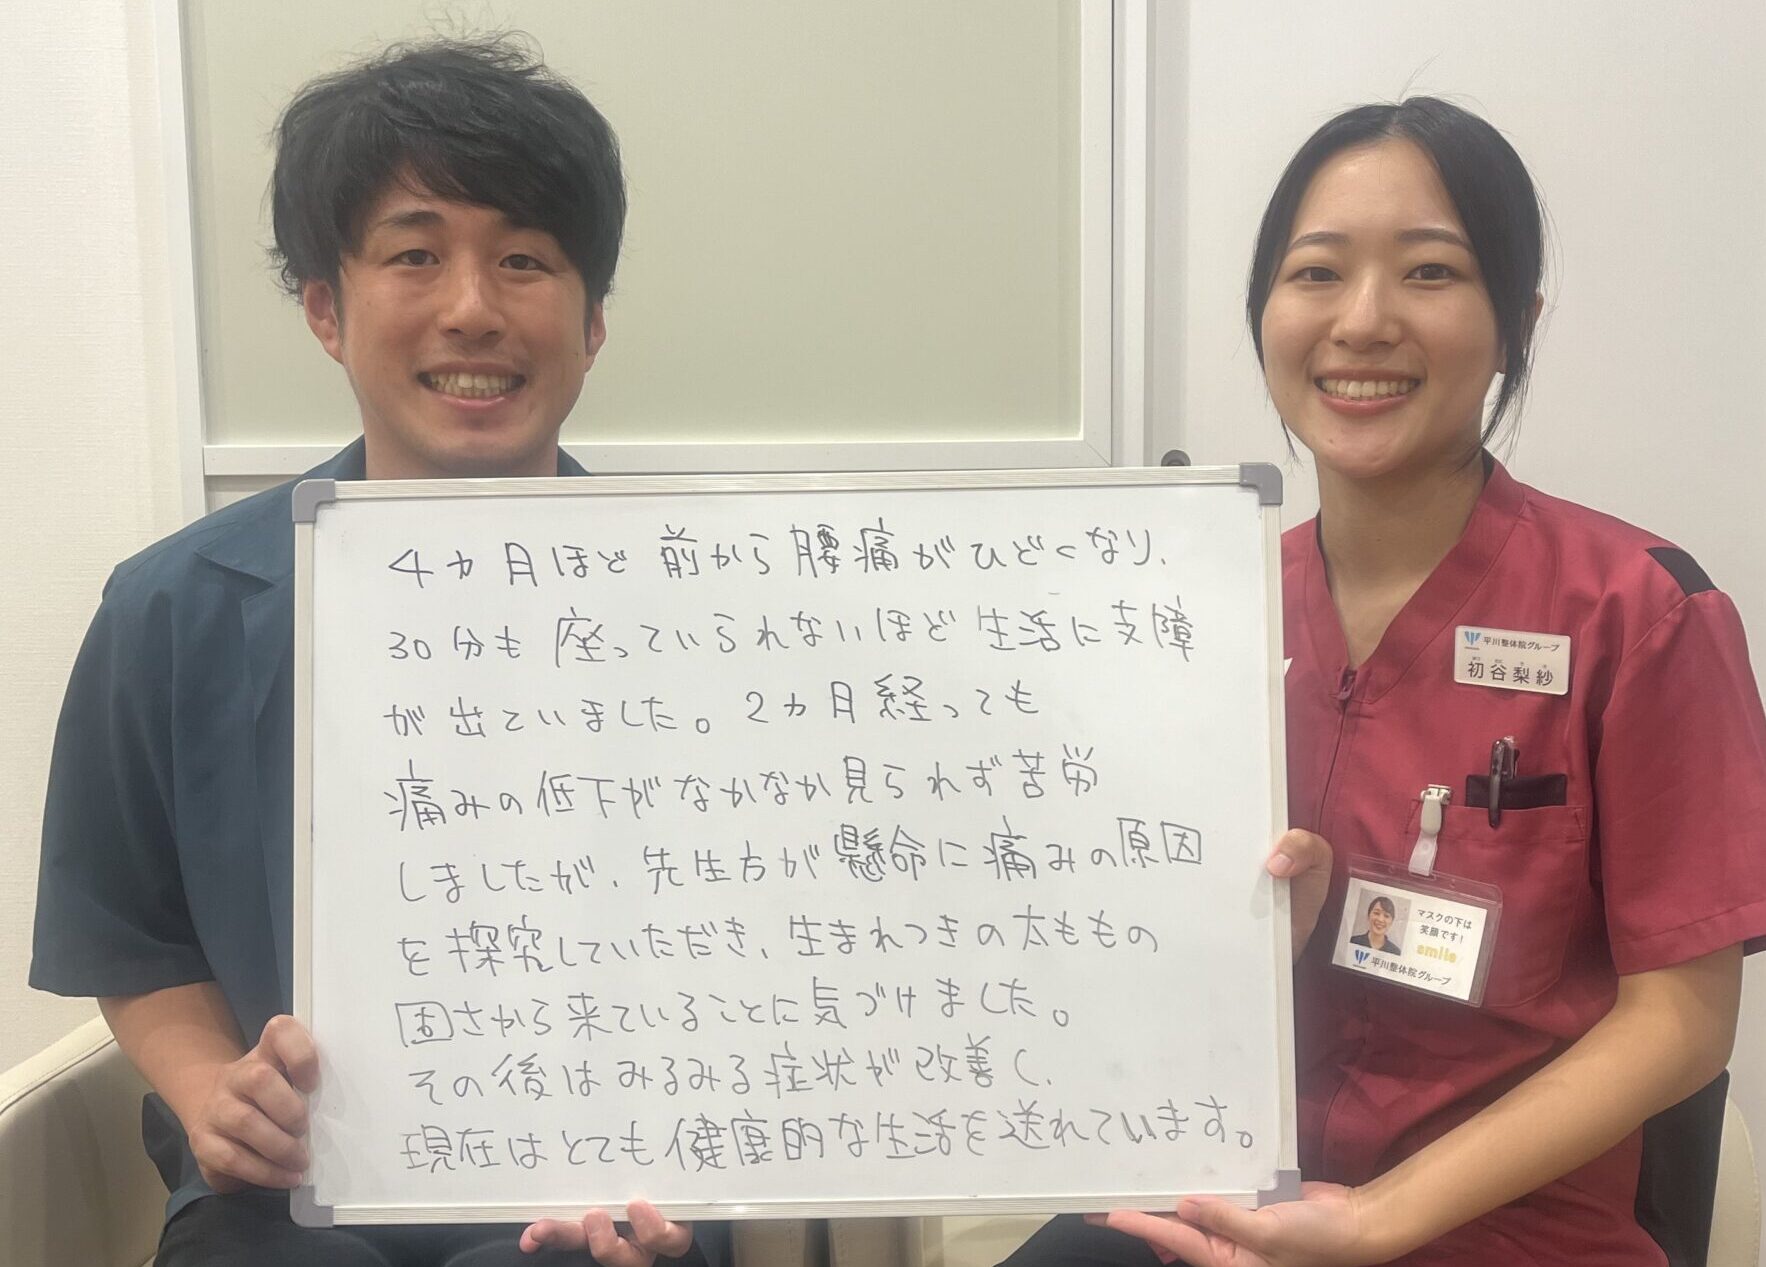 4カ月ほど前から腰痛がひどくなり、
30分も座っていられないほど生活に支障
が出ていました。2カ月経っても
痛みの低下がなかなか見られず苦労
しましたが、先生方が懸命に痛みの原因
を探究していただき、生まれつきの太ももの
固さから来ていることに気づけました。
その後はみるみる症状が改善し、
現在はとても健康的な生活を送れています。
平川整体院グループ
初谷梨紗
マスクの下は
笑顔です!
smile
平川整体院グループ